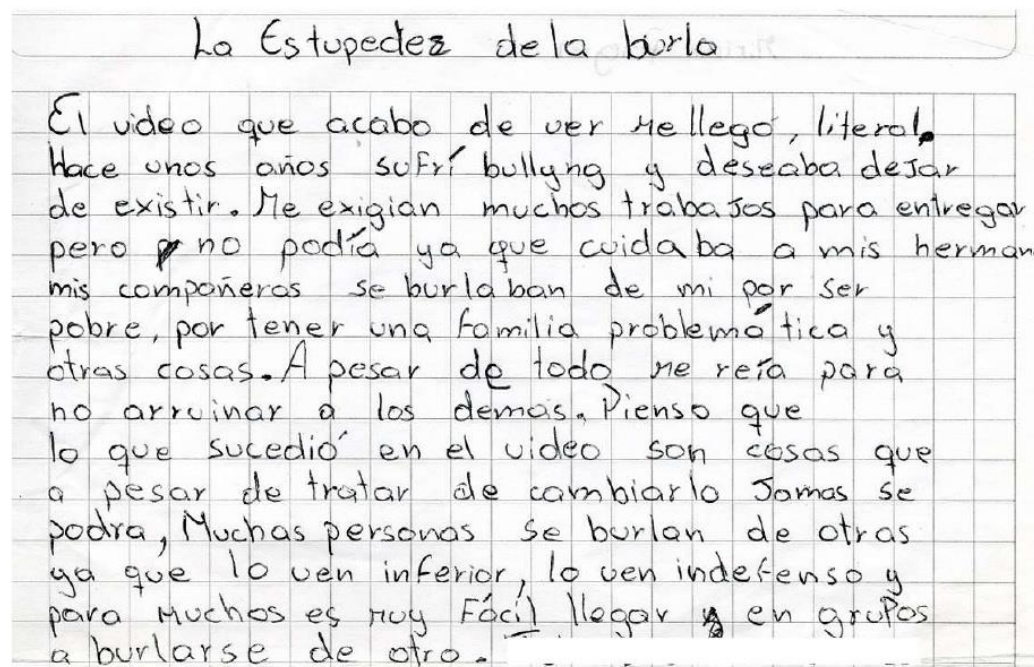 La Estupedez de la burla
El video que acabo de ver me llegó, literal.
Hace unos años sufrí bullyng y deseaba dejar
de existir. Me exigian muchos trabajos para entregar
pero no podía ya que cuidaba a mis herman
mis compañeros se burlaban de mi por ser
pobre, por tener una familia problemática y
otras cosas. A pesar de todo me reía para
no arruinar a los demas. Pienso que
lo que sucedió en el video son cosas que
a pesar de tratar de cambiarlo Jamas se
podra, Muchas personas se burlan de otras
ya que lo ven inferior, lo ven indefenso y
para muchos es muy Fácil llegar en grupos
a burlarse de otro.